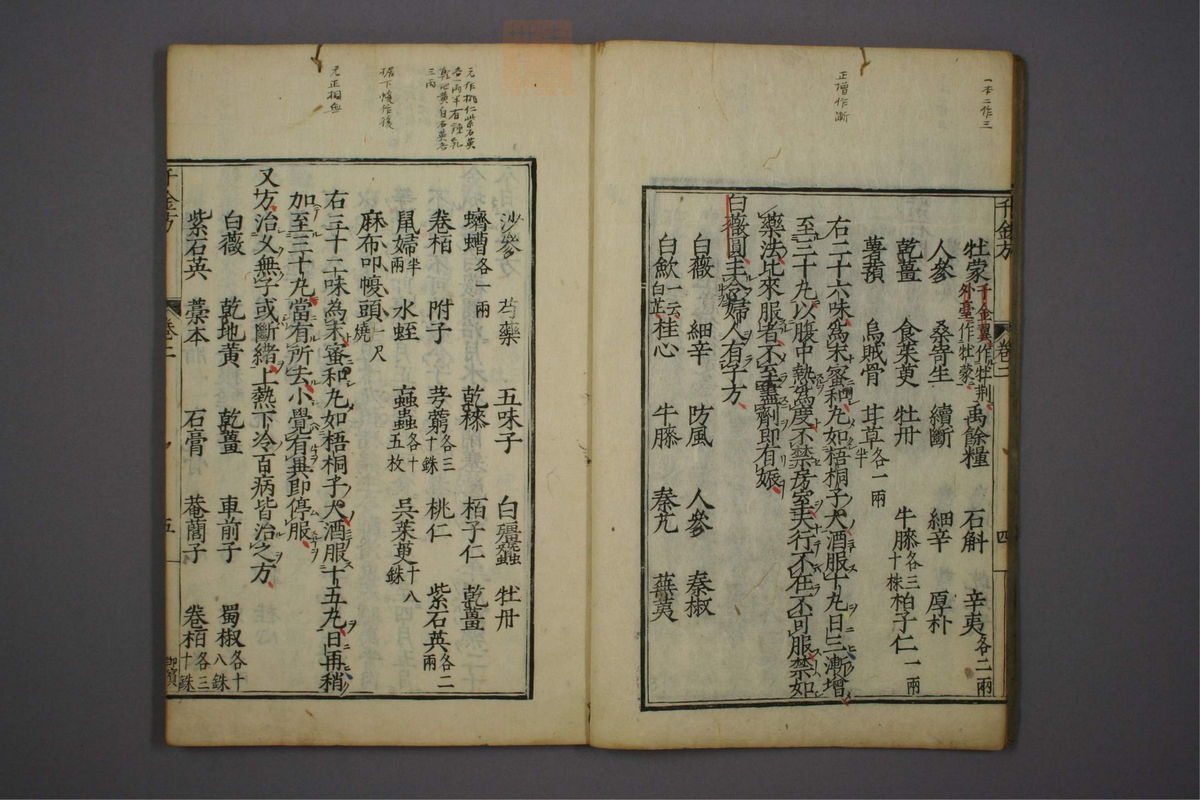 一本二作三
正増作漸
千金方
卷二
四
牡蒙千金翼作牡荆外臺作牡蒙 禹餘糧 石斛 辛夷各二兩
人參 桑寄生 續斷 細辛 厚朴
乾薑 食茱萸 牡丹 牛膝各三十株 柏子仁一兩
薯蕷 烏賊骨 茸草各一兩半
右二十六味爲末蜜和丸如梧桐子大酒服十丸日三漸增
至三十丸以腹中熱爲度不禁房室夫行不在不可服禁如
藥法比來服者不至盡劑即有娠
白薇圓主令婦人有子方
白薇 細辛 防風 人參 秦椒
白歛一云白芷 桂心 牛膝 秦艽 蕪荑
元作桃仁紫石英
各一兩半石鍾乳
乾地黄白石英各
三兩
裙下幞作後
元正相無
沙參 芍藥 五味子 白殭蠶 牡丹
蠐螬各一兩 乾漆 栢子仁 乾薑
卷栢 附子 芎藭各三十銖 桃仁 紫石英各二兩
鼠婦半兩 水蛭 䖟蟲各十五枚 吳茱萸十八銖
麻布叩幞頭一尺燒
右三十二味爲末蜜和丸如梧桐子大酒服十五丸日再稍
加至三十丸當有所去小覺有異即停服
又方治久無子或斷緒上熱下冷百病皆治之方
白薇 乾地黄 乾薑 車前子 蜀椒各十八銖
紫石英 藁本 石膏 菴䕡子 卷栢各三十銖
千金方
卷二
五